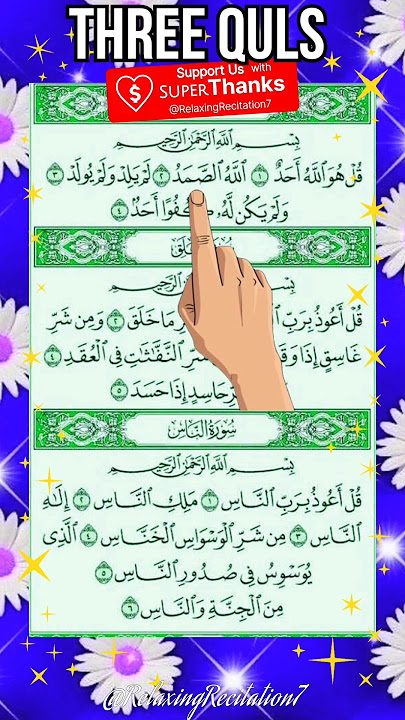 THREE QULS
Support Us with
SUPER Thanks
@RelaxingRecitation7
بِسْمِ اللَّهِ الرَّحْمَٰنِ الرَّحِيمِ
قُلْ هُوَ اللَّهُ أَحَدٌ ١ اللَّهُ الصَّمَدُ ٢ لَمْ يَلِدْ وَلَمْ يُولَدْ ٣
وَلَمْ يَكُن لَّهُ كُفُوًا أَحَدٌ ٤
بِسْمِ الرَّحِيمِ
قُلْ أَعُوذُ بِرَبِّ مَا خَلَقَ ٢ وَمِن شَرِّ
غَاسِقٍ إِذَا النَّفَّٰثَٰتِ فِي الْعُقَدِ ٤
حَاسِدٍ إِذَا حَسَدَ ٥
سُورَةُ النَّاسِ
بِسْمِ اللَّهِ الرَّحْمَٰنِ الرَّحِيمِ
قُلْ أَعُوذُ بِرَبِّ النَّاسِ ١ مَلِكِ النَّاسِ ٢ إِلَٰهِ
النَّاسِ ٣ مِن شَرِّ الْوَسْوَاسِ الْخَنَّاسِ ٤ الَّذِي
يُوَسْوِسُ فِي صُدُورِ النَّاسِ ٥
مِنَ الْجِنَّةِ وَالنَّاسِ ٦
@RelaxingRecitation7